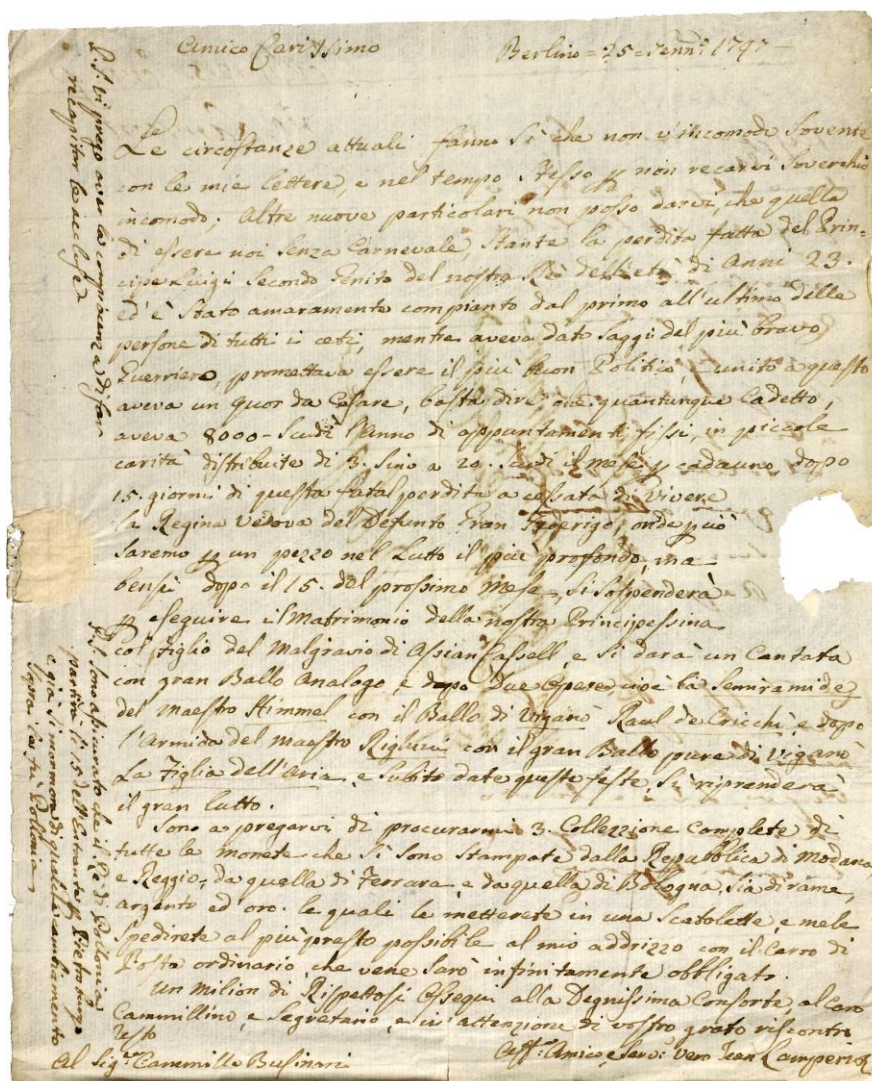 Amico Carissimo
Berlino = 25 = Genn: 1797 —
Le circostanze attuali fanno si che non v'incomodi sovente
con le mie lettere, e nel tempo stesso p non recarvi soverchio
incomodo; Altre nuove particolari non posso darvi, che quella
di essere noi senza Carnevale, stante la perdita fatta del Prin=
cipe Luigi Secondo Genito del nostro Rè dell'età di Anni 23.
ed è stato amaramente compianto dal primo all'ultimo delle
persone di tutti i ceti, mentre aveva dato saggi del più bravo
Guerriero, promettava essere il più buon Politico, e unito a questo
aveva un quor da Cesare, basta dire che quantunque Cadetto,
aveva 8000 - Scudi l'Anno di appuntamenti fissi, in piccole
carità distribuite di 3. sino a 20. Scudi il mese p cadauno, dopo
15. giorni di questa fatal perdita a cessata di vivere
la Regina Vedova del Defunto Gran Federigo, onde p ciò
saremo p un pezzo nel Lutto il più profondo, ma
bensì dopo il 15. del prossimo Mese, si sospenderà
p eseguire il Matrimonio della nostra Principessina
col figlio del Malgravio di Assian Cassell, e si darà un Cantata
con gran Ballo Analogo, e dopo Due Opere, cioè la Semiramide
del Maestro Himmel con il Ballo di Viganò Raul de Cricchi, e dopo
l'Armida del Maestro Righini con il gran Ballo pure di Viganò
La Figlia dell'Aria, e subito date queste feste, si riprenderà
il gran lutto.
Sono a pregarvi di procurarmi 3. Collezzione complete di
tutte le monete che si sono stampate dalla Repubblica di Modana
e Reggio, da quella di Ferrara, e da quella di Bologna, sia di rame,
argento ed oro. le quali le metterete in una Scatolette, e mele
spedirete al più presto possibile al mio addrizzo con il Carro di
Posta ordinario, che vene sarò infinitamente obbligato.
Un milion di Rispettosi Ossequi alla Degnissima Consorte al Caro
Cammillino, e Segretario, e in attenzione di vostro grato riscontro
resto
Al Sig.re Cammillo Businari
Aff: Amico e Serv: vero Jean Lamperi
P.S. vi prego aver la compiacenza di far
recapitar le accluse
P.S. Sono assicurato che il Rè di Pollonia
partirà li 15 dell'entrante p Pietroburgo
e già si mormora di qualche cambiamento
sopra la fù Pollonia